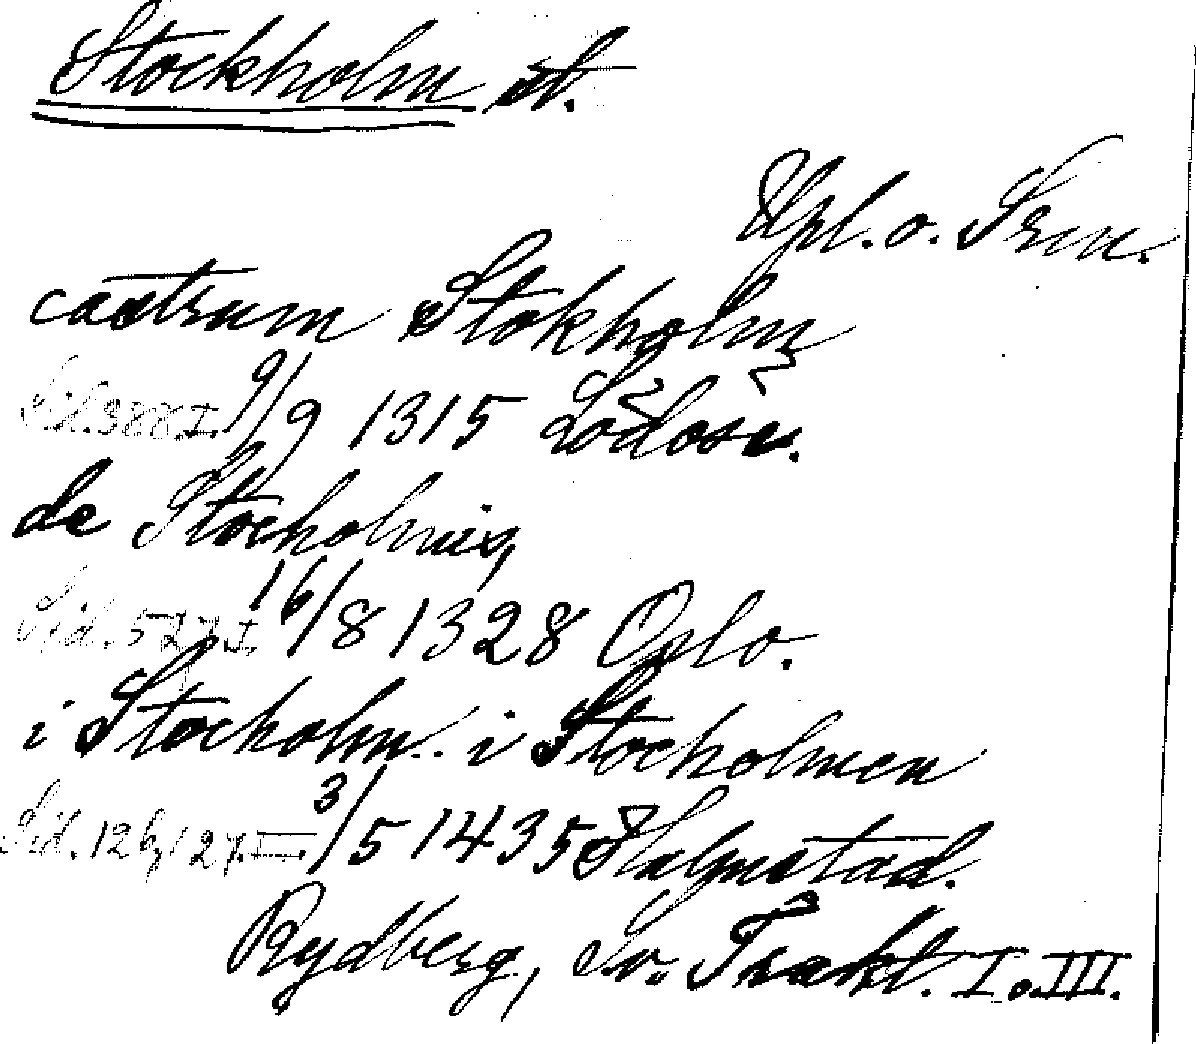 Stockholm st.
Upl. o. Srm.
castrum Stokholm
Sid. 388 I. 9/9 1315 Lödose.
de Stocholmis,
Sid. 527 I. 16/8 1328 Oslo.
i Stocholm. i Stocholmen
Sid. 126, 127 III. 3/5 1435 Halmstad.
Rydberg, Sv. Trakt. I o. III.